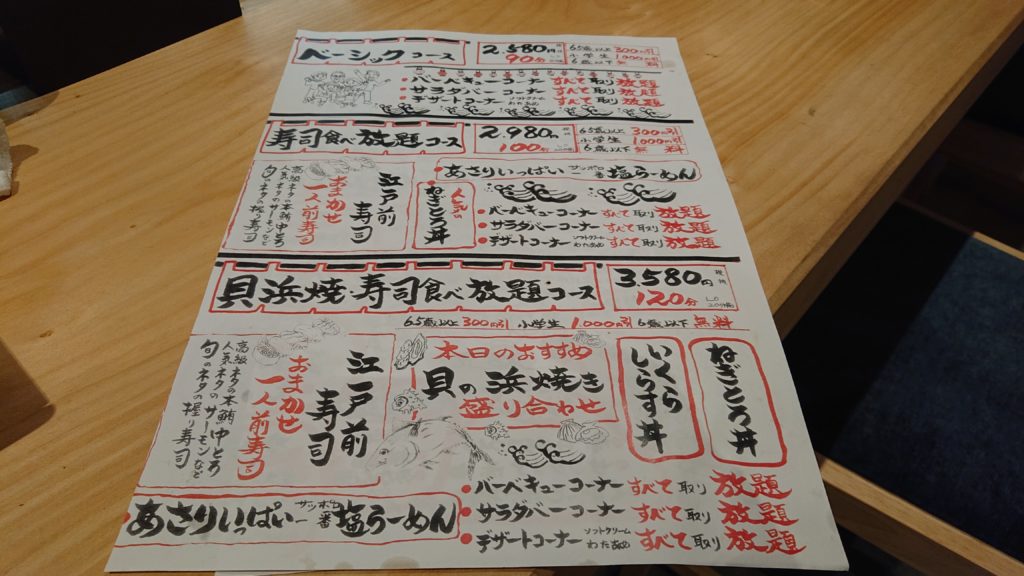 ベーシックコース
2,580円
90分
65歳以上 300円引
小学生
6歳以下 無料
・バーベキューコーナー すべて取り放題
・サラダバーコーナー すべて取り放題
・デザートコーナー ソフトクリーム わたあめ すべて取り放題
寿司食べ放題コース
2,980円
100分
65歳以上 300円引
小学生 1,000円引
6歳以下 無料
江戸前寿司
おまかせ
一人前寿司
高級ネタの本鮪中とろ
人気ネタのサーモンなど
旬のネタの握り寿司
人気の
ねぎとろ丼
あさりいっぱい サッポロ一番 塩らーめん
・バーベキューコーナー すべて取り放題
・サラダバーコーナー すべて取り放題
・デザートコーナー ソフトクリーム わたあめ すべて取り放題
貝浜焼・寿司食べ放題コース
3,580円
120分
65歳以上300円引 小学生1,000円引 6歳以下無料
江戸前寿司
おまかせ
一人前寿司
高級ネタの本鮪中とろ
人気ネタのサーモンなど
旬のネタの握り寿司
本日のおすすめ
貝の浜焼き
盛り合わせ
いくら
しらす丼
ねぎとろ丼
・あさりいっぱい サッポロ一番 塩らーめん
・バーベキューコーナー すべて取り放題
・サラダバーコーナー すべて取り放題
・デザートコーナー ソフトクリーム わたあめ すべて取り放題